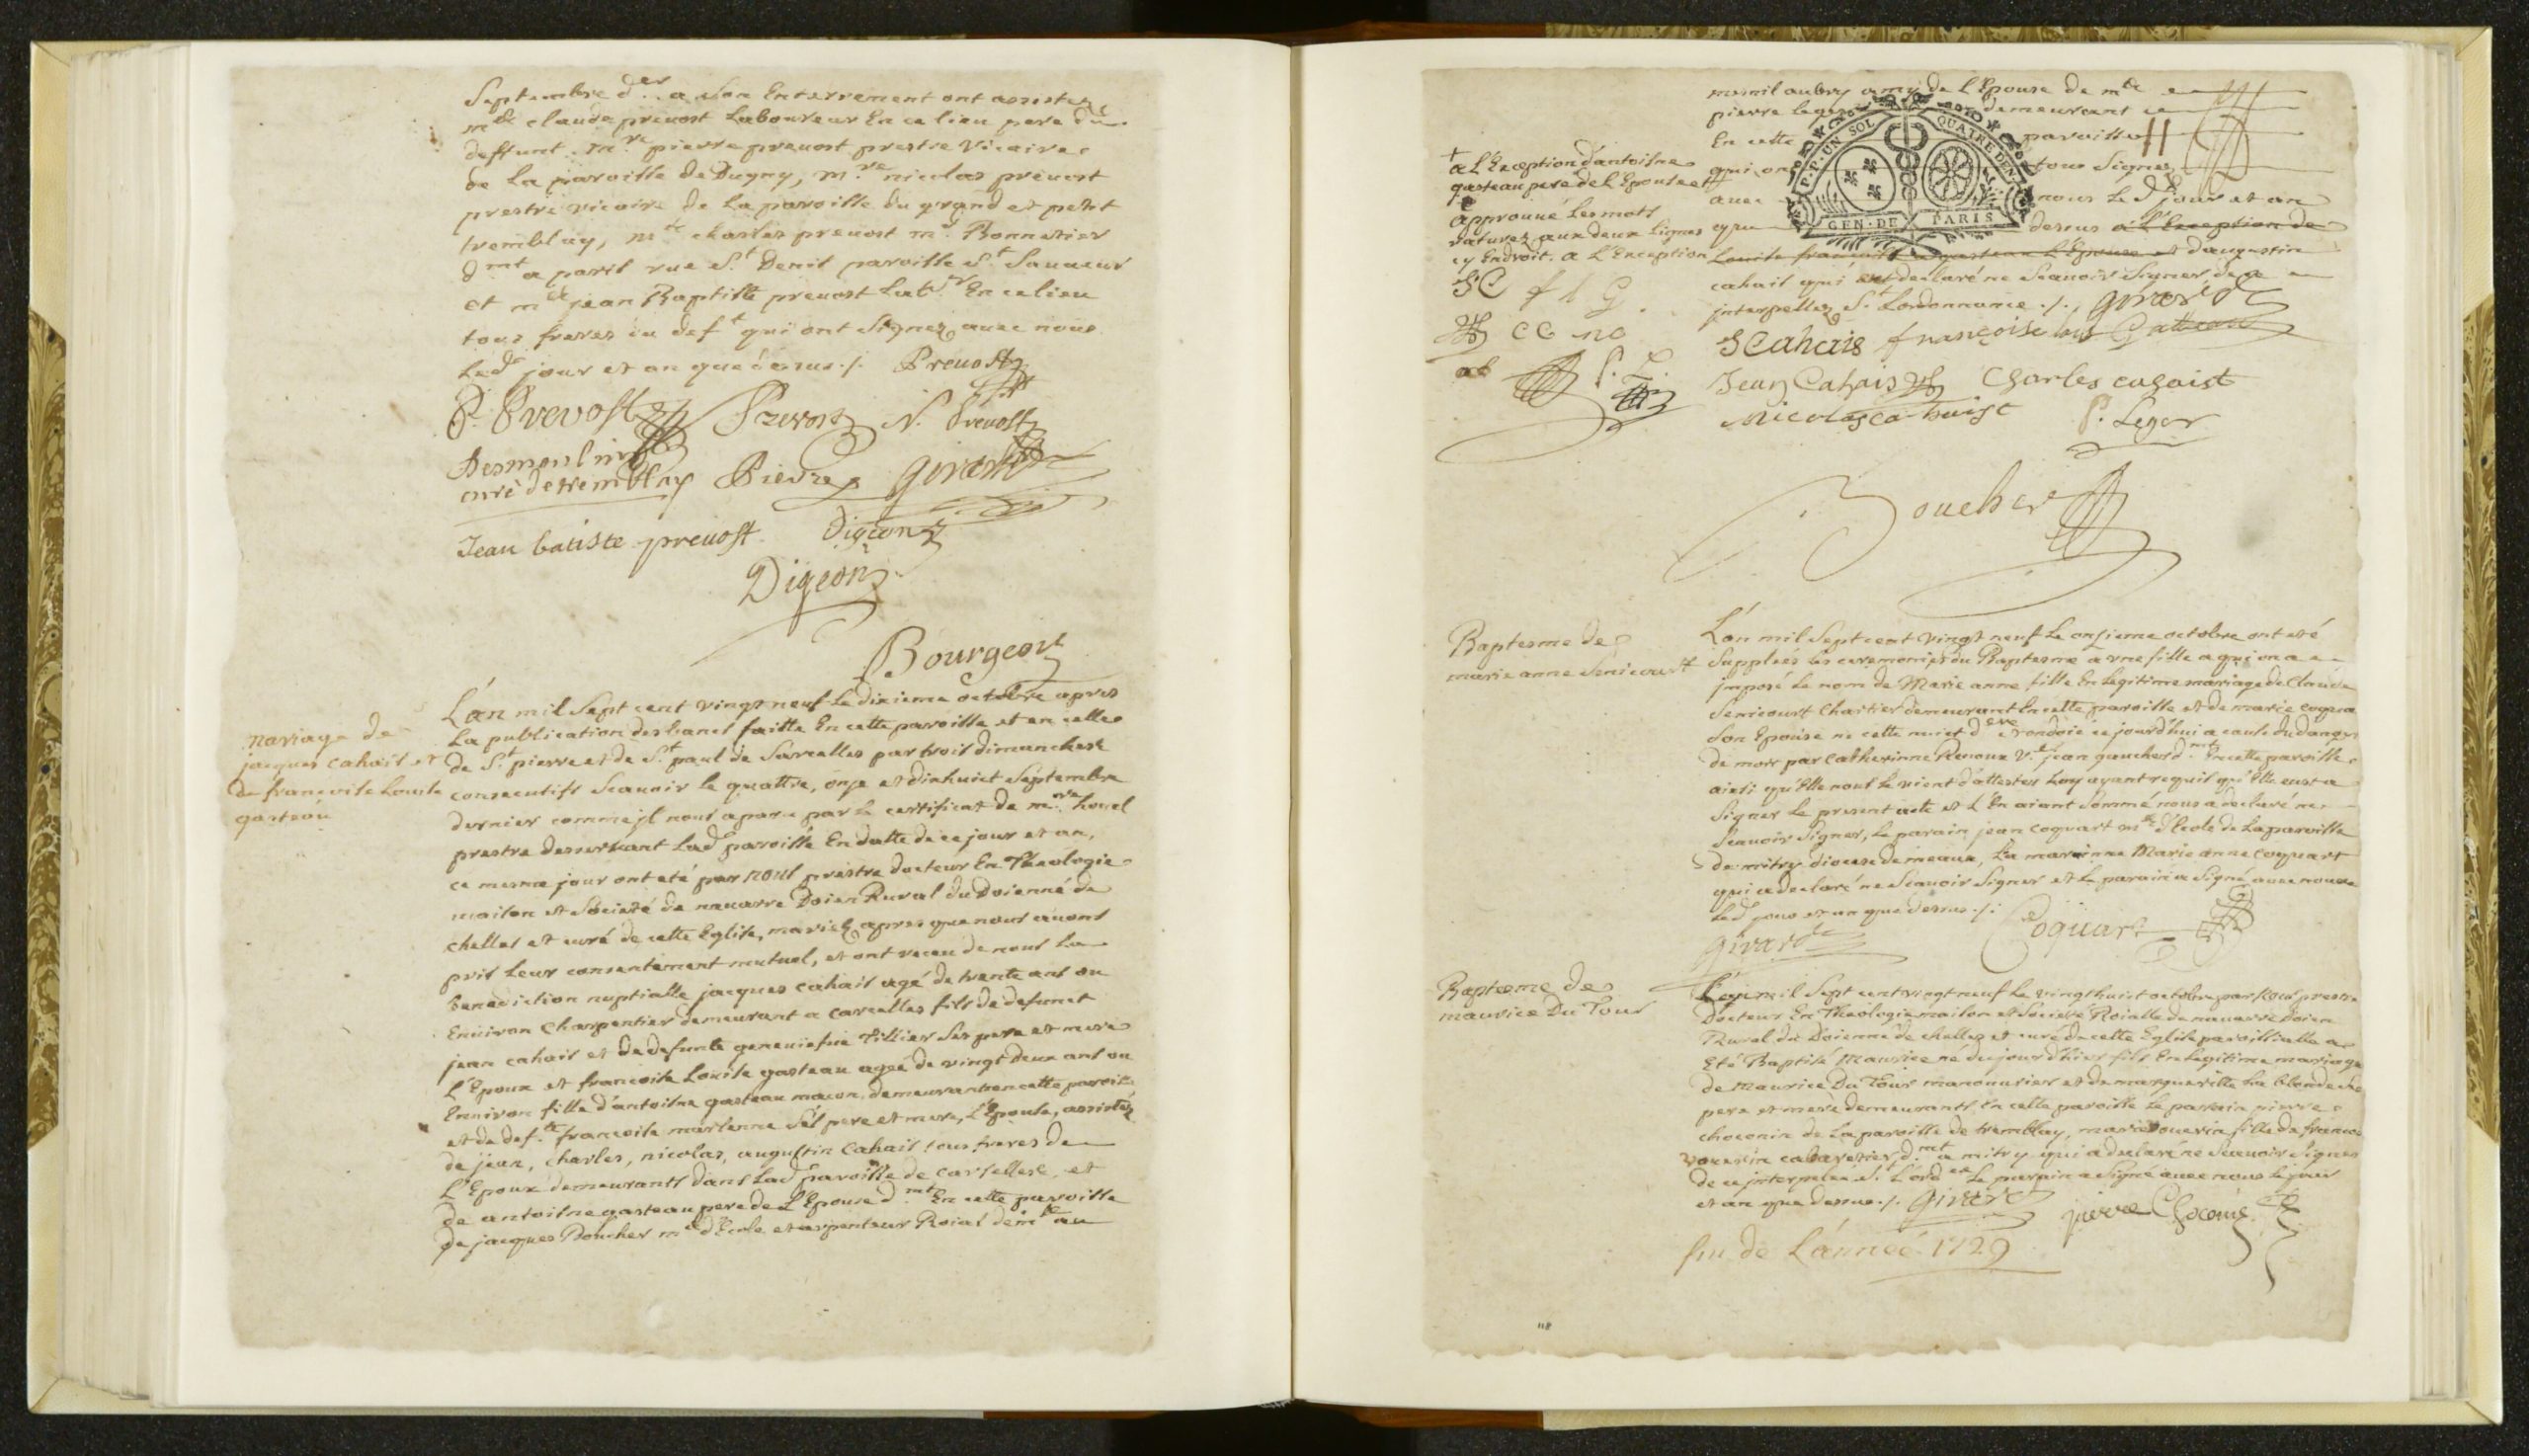 Septembre d.er a son Enterrement ont assistez
m.tre claude preuost Laboureur En ce lieu pere du
deffunt. m.re pierre preuost prestre Vicaire
de La paroisse de Dugny, m.re nicolas preuost
prestre vicaire de La paroisse du grand et petit
tremblay, charles preuost m.d Bonnetier
d.mt a paris rue S.t Denis paroisse S.t Sauueur
et jean Baptiste preuost Lab.r En ce lieu
tous freres du def.t qui ont Signez auec nous
Led. jour et an que dessus ./. Preuost
P. Prevost Prevost N. Preuost
Desmoulins
curé de tremblay Pierre girard
Jean batiste preuost Digeon
Digeon
Bourgeois
mariage de
jacques cahais et
de francoise Louise
gasteau
L'an mil Sept cent vingt neuf Le dixieme octobre apres
La publication des bancs faitte En cette paroisse et en celle
de S.t pierre et de S.t paul de Sarcelles par trois dimanches
consecutifs Scauoir le quattre, onze et dixhuict Septembre
dernier comme jl nous a paru par Le certificat de m.re houel
prestre desseruant Lad. paroisse En datte de ce jour et an,
ce mesme jour ont eté par nous prestre docteur En Theologie
maison et Societé de nauarre Doien Rural du Doienné de
chelles et curé de cette Eglise, mariez apres que nous auons
pris Leur consentement mutuel, et ont receu de nous La
benediction nuptialle jacques cahais agé de trente ans ou
Enuiron Charpentier demeurant a carcelles fils de defunct
jean cahais et de defunte geneuiefue Tillier Ses pere et mere
L'Epoux et francoise Louise gasteau agée de vingt deux ans ou
Enuiron fille d'antoisne gasteau macon, demeurant en cette paroisse
et de def.te francoise marlenne Ses pere et mere, L'Epouse, assistez
de jean, charles, nicolas, augustin Cahais tous freres de
L'Epoux demeurants dans Lad. paroisse de Carselles, et
de antoisne gasteau pere de L'Epouse d.mt En cette paroisse
de jacques Boucher m.e d'Ecole et arpenteur Roial dem.t au
mesnil aubry amy de L'Epouse de
pierre leger demeurant
En cette paroisse
qui ont tous Signez
auec nous Led. jour et an
que dessus a L'Exception de
Louise francoise gasteau L'Epouse et d'augustin
cahais qui declaré ne Scauoir Signer de ce
jnterpellez S.t Lordonnance ./. girard
P.P. UN SOL QUATRE DEN.
GEN. DE PARIS
+
a L'Exception d'antoisne
gasteau pere de L'Epouse et
approuué Les mots
raturez aux deux Lignes
cy Endroit. a L'Exception
JC f l G
CC nc
P. L.
J Cahais françoise louis Gatteau
Jean Cahais Charles cahaist
Nicolas cahaist P. Leger
Boucher
Baptesme de
marie anne Senicourt
L'an mil Sept cent vingt neuf Le onzieme octobre ont eté
Suppleés les ceremonies du Baptesme a vne fille a qui on a
jmposé Le nom de Marie anne fille En Legitime mariage de Claude
Senicourt Chartier demeurant En cette paroisse et de marie coquart
Son Epouse né cette nuict d.ere ondoié ce jourd'hui a cause du danger
de mort par Catherinne Renoux V.e jean gaucher d.mt En cette paroisse
ainsi qu'Elle nous Le vient d'attester Lay ayant requis qu'Elle eust a
Signer Le present acte et L'En aiant Sommé nous a declaré ne
Scauoir Signer, Le parain jean coquart m.e d'Ecole de La paroisse
de mitry diocese de meaux, La marainne Marie anne Coquart
qui a declaré ne Scauoir Signer et Le parain a Signé auec nous
Led. jour et an que dessus ./.
girard Coquart
Baptesme de
maurice Du Tour
L'an mil Sept cent vingt neuf Le vingt huict octobre par Nous prestre
Docteur En Theologie maison et Societé Roialle de nauarre Doien
Rural du Doienné de chelles et curé de cette Eglise paroissialle a
Eté Baptisé Maurice né du jour d'hier fils En Legitime mariage
de maurice Du Tour manouurier et de margueritte La blonde
pere et mere demeurants En cette paroisse Le parain pierre
choconin de La paroisse de tremblay, marie fille de francois
cabaretier d.mt a mitry qui a declaré ne Scauoir Signer
de ce jnterpelée S.t L'ord.ce Le parain a Signé auec nous Le jour
et an que dessus ./. girard pierre Choconin
fin de L'année 1729